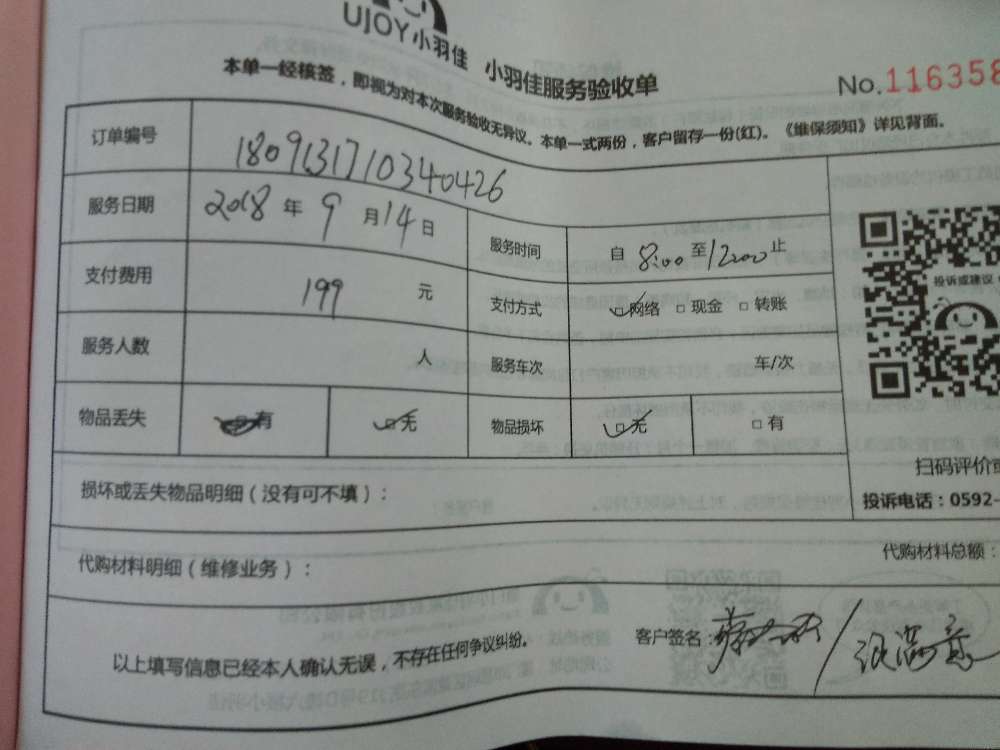 UJOY小羽佳
小羽佳服务验收单
No.116358
本单一经核签，即视为对本次服务验收无异议。本单一式两份，客户留存一份(红)。《维保须知》详见背面。
订单编号 1809131710340426
服务日期 2018 年 9 月 14 日 服务时间 自 8:00 至 12:00 止
支付费用 199 元 支付方式 □网络 □现金 □转账
服务人数 人 服务车次 车/次
物品丢失 □有 □无 物品损坏 □无 □有
投诉或建议
扫码评价或
投诉电话：0592-
损坏或丢失物品明细（没有可不填）：
代购材料明细（维修业务）： 代购材料总额：
以上填写信息已经本人确认无误，不存在任何争议纠纷。 客户签名：